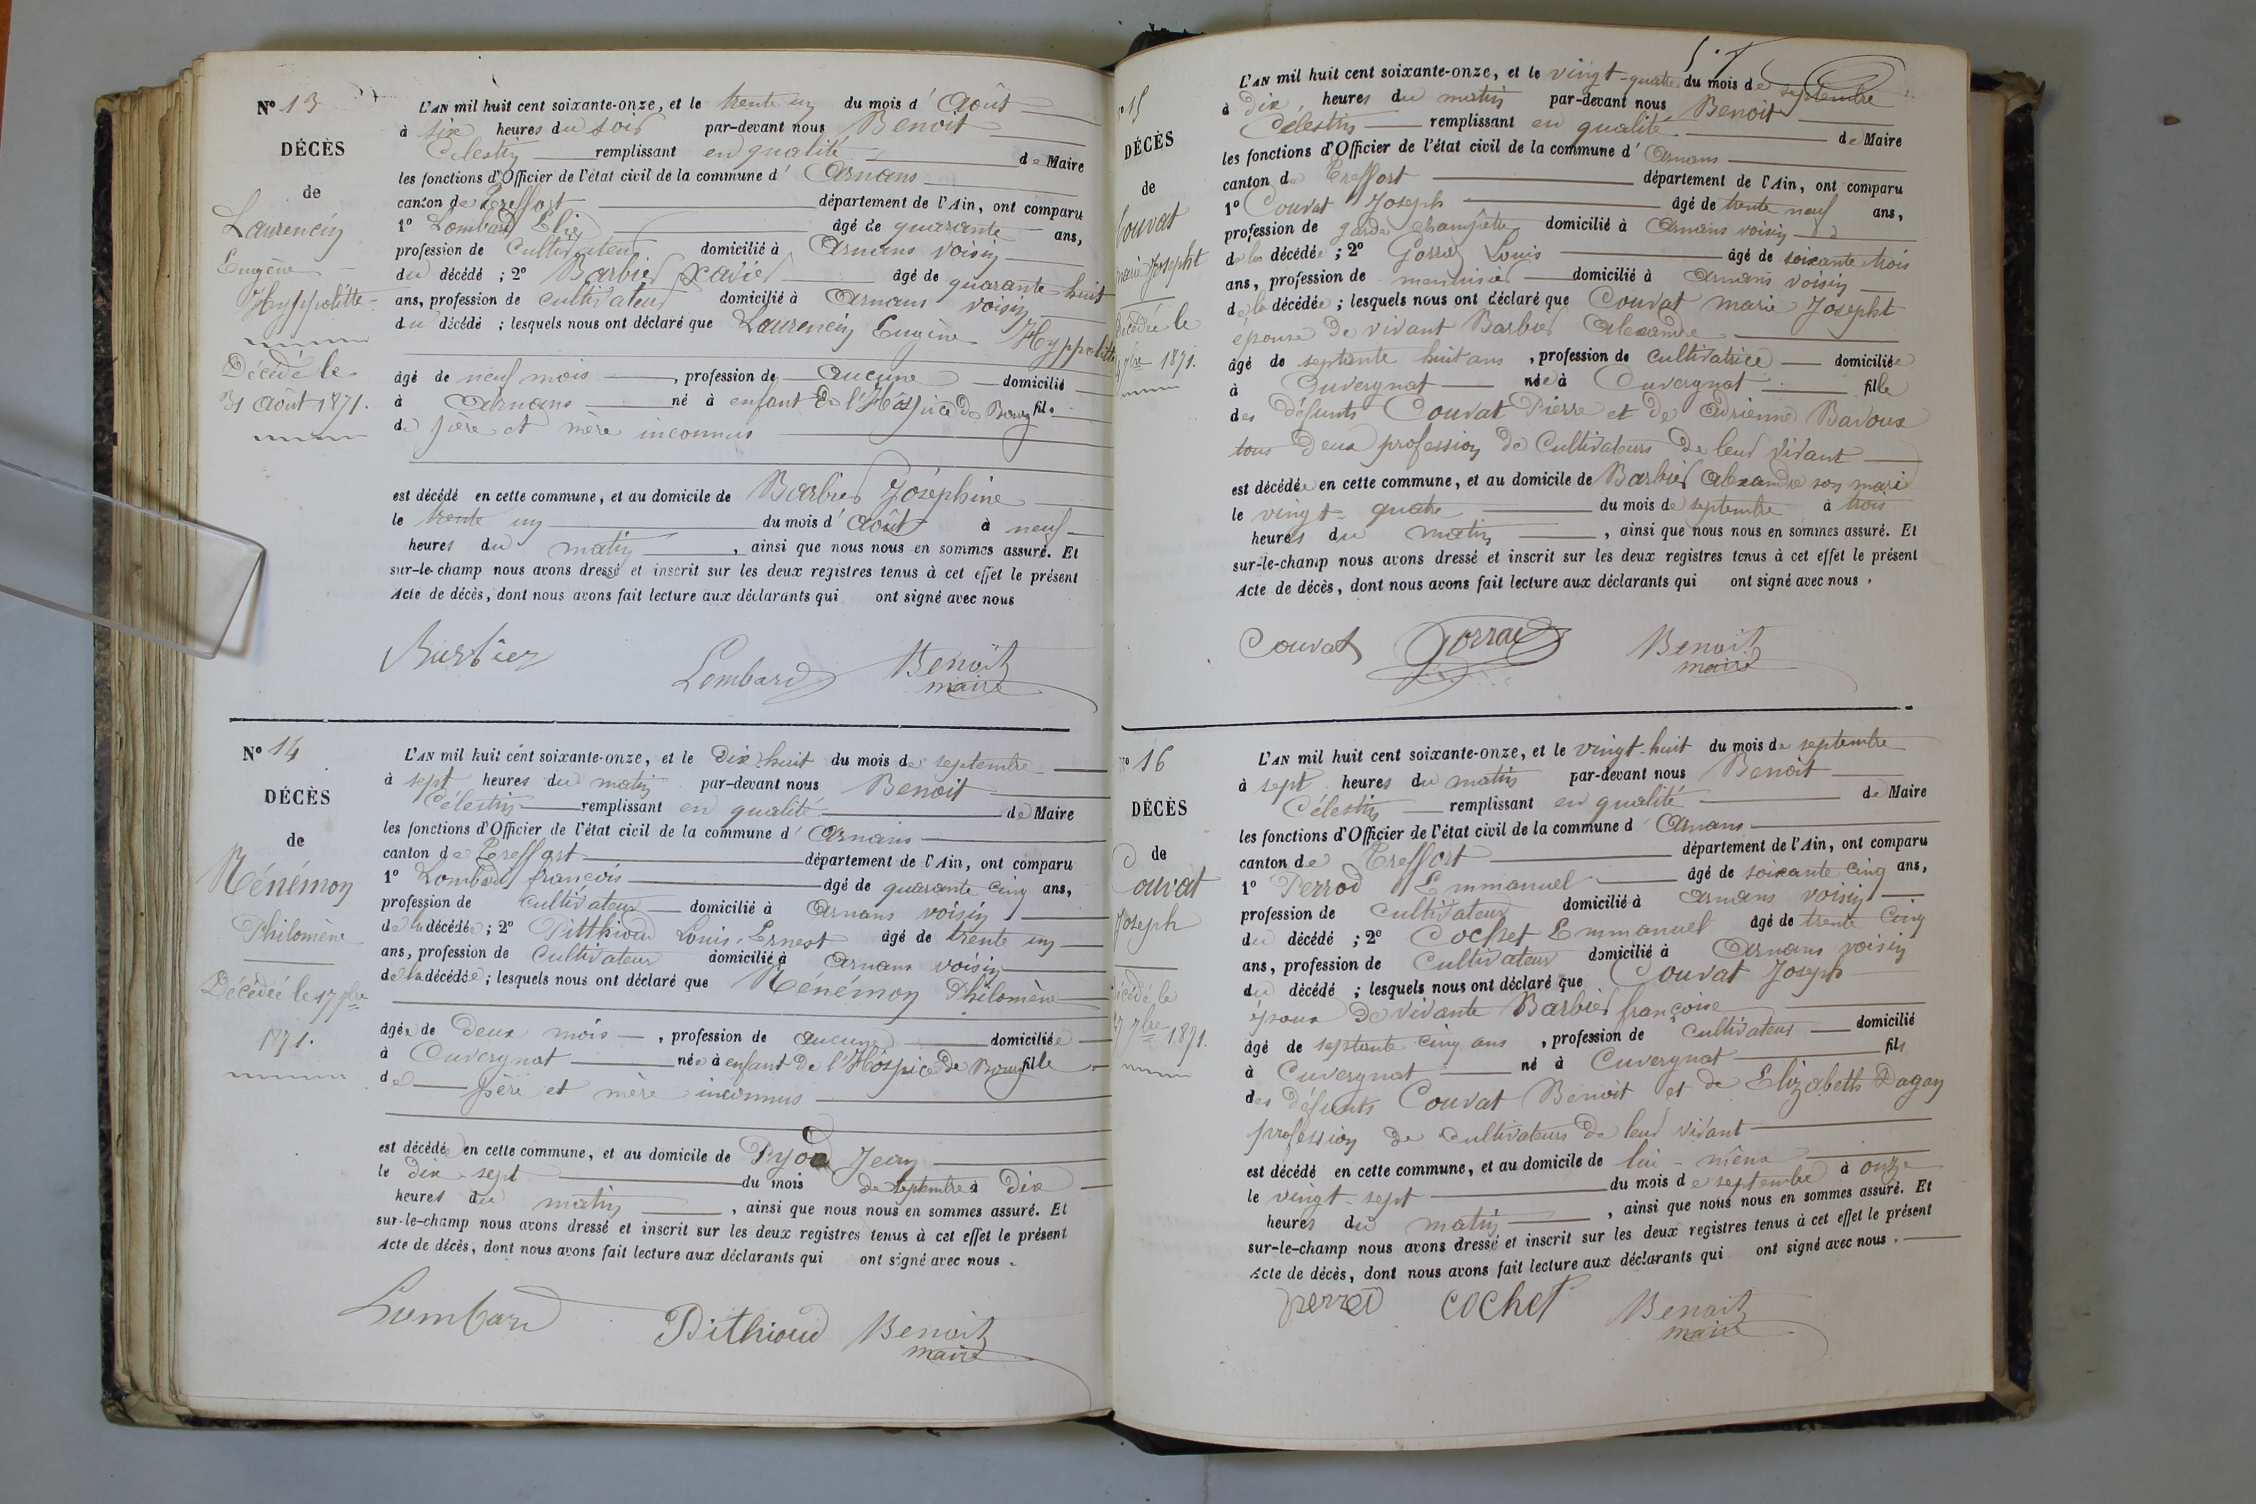 N° 13
DÉCÈS
de
Laurencin
Eugène
Hyppolitte
Décédé le
31 Août 1871.
L'AN mil huit cent soixante-onze, et le trente un du mois d' Août
à six heures du soir par-devant nous Benoit
Célestin remplissant en qualité de Maire
les fonctions d'Officier de l'état civil de la commune d' Arnans
canton de Treffort département de l'Ain, ont comparu
1° Lombard Elie âgé de quarante ans,
profession de Cultivateur domicilié à Arnans voisin
du décédé ; 2° Barbier Xavier âgé de quarante huit
ans, profession de Cultivateur domicilié à Arnans voisin
du décédé ; lesquels nous ont déclaré que Laurencin Eugène Hyppolitte
âgé de neuf mois , profession de Aucune domicilié
à Arnans né à enfant de l'Hospice de Bourg fils
de père et mère inconnus
est décédé en cette commune, et au domicile de Barbier Joséphine
le trente un du mois d' Août à neuf
heures du matin , ainsi que nous nous en sommes assuré. Et
sur-le-champ nous avons dressé et inscrit sur les deux registres tenus à cet effet le présent
Acte de décès, dont nous avons fait lecture aux déclarants qui ont signé avec nous
Barbier Lombard Benoit
maire
N° 14
DÉCÈS
de
Nénémon
Philomène
Décédée le 17 7bre
1871.
L'AN mil huit cent soixante-onze, et le Dix-huit du mois de septembre
à sept heures du matin par-devant nous Benoit
Célestin remplissant en qualité de Maire
les fonctions d'Officier de l'état civil de la commune d' Arnans
canton de Treffort département de l'Ain, ont comparu
1° Lombard françois âgé de quarante cinq ans,
profession de cultivateur domicilié à Arnans voisin
de la décédée ; 2° Pitthioud Louis Ernest âgé de trente un
ans, profession de Cultivateur domicilié à Arnans voisin
de la décédée ; lesquels nous ont déclaré que Nénémon Philomène
âgée de deux mois , profession de aucune domiciliée
à Cuvergnat née à enfant de l'Hospice de Bourg fille
de père et mère inconnus
est décédée en cette commune, et au domicile de Pyod Jean
le dix-sept du mois de septembre à Dix
heures du matin , ainsi que nous nous en sommes assuré. Et
sur-le-champ nous avons dressé et inscrit sur les deux registres tenus à cet effet le présent
Acte de décès, dont nous avons fait lecture aux déclarants qui ont signé avec nous .
Lombard Pithioud Benoit
maire
° 15
DÉCÈS
de
Couvat
marie Josepht
Décédée le
7bre 1871.
L'AN mil huit cent soixante-onze, et le vingt-quatre du mois de septembre
à dix heures du matin par-devant nous Benoit
Célestin remplissant en qualité de Maire
les fonctions d'Officier de l'état civil de la commune d' Arnans
canton de Treffort département de l'Ain, ont comparu
1° Couvat Joseph âgé de trente neuf ans,
profession de garde champêtre domicilié à Arnans voisin
de la décédée ; 2° Gorraz Louis âgé de soixante trois
ans, profession de menuisier domicilié à Arnans voisin
de la décédée ; lesquels nous ont déclaré que Couvat marie Josepht
épouse de vivant Barbier Alexandre
âgé de septante huit ans , profession de Cultivatrice domiciliée
à Cuvergnat née à Cuvergnat fille
des défunts Couvat Pierre et de Adrienne Badoux
tous deux profession de Cultivateurs de leur vivant
est décédée en cette commune, et au domicile de Barbier Alexandre son mari
le vingt-quatre du mois de septembre à trois
heures du matin , ainsi que nous nous en sommes assuré. Et
sur-le-champ nous avons dressé et inscrit sur les deux registres tenus à cet effet le présent
Acte de décès, dont nous avons fait lecture aux déclarants qui ont signé avec nous .
Couvat Gorraz Benoit
maire
° 16
DÉCÈS
de
Couvat
Joseph
Décédé le
27 7bre 1871.
L'AN mil huit cent soixante-onze, et le vingt-huit du mois de septembre
à sept heures du matin par-devant nous Benoit
Célestin remplissant en qualité de Maire
les fonctions d'Officier de l'état civil de la commune d' Arnans
canton de Treffort département de l'Ain, ont comparu
1° Perrod Emmanuel âgé de soixante cinq ans,
profession de Cultivateur domicilié à Arnans voisin
du décédé ; 2° Cochet Emmanuel âgé de trente cinq
ans, profession de Cultivateur domicilié à Arnans voisin
du décédé ; lesquels nous ont déclaré que Couvat Joseph
époux de vivante Barbier françoise
âgé de septante cinq ans , profession de cultivateur domicilié
à Cuvergnat né à Cuvergnat fils
des défunts Couvat Benoit et de Elizabeth Dagay
profession de cultivateurs de leur vivant
est décédé en cette commune, et au domicile de lui-même
le vingt-sept du mois de septembre à onze
heures du matin , ainsi que nous nous en sommes assuré. Et
sur-le-champ nous avons dressé et inscrit sur les deux registres tenus à cet effet le présent
Acte de décès, dont nous avons fait lecture aux déclarants qui ont signé avec nous .
perrod cochet Benoit
maire